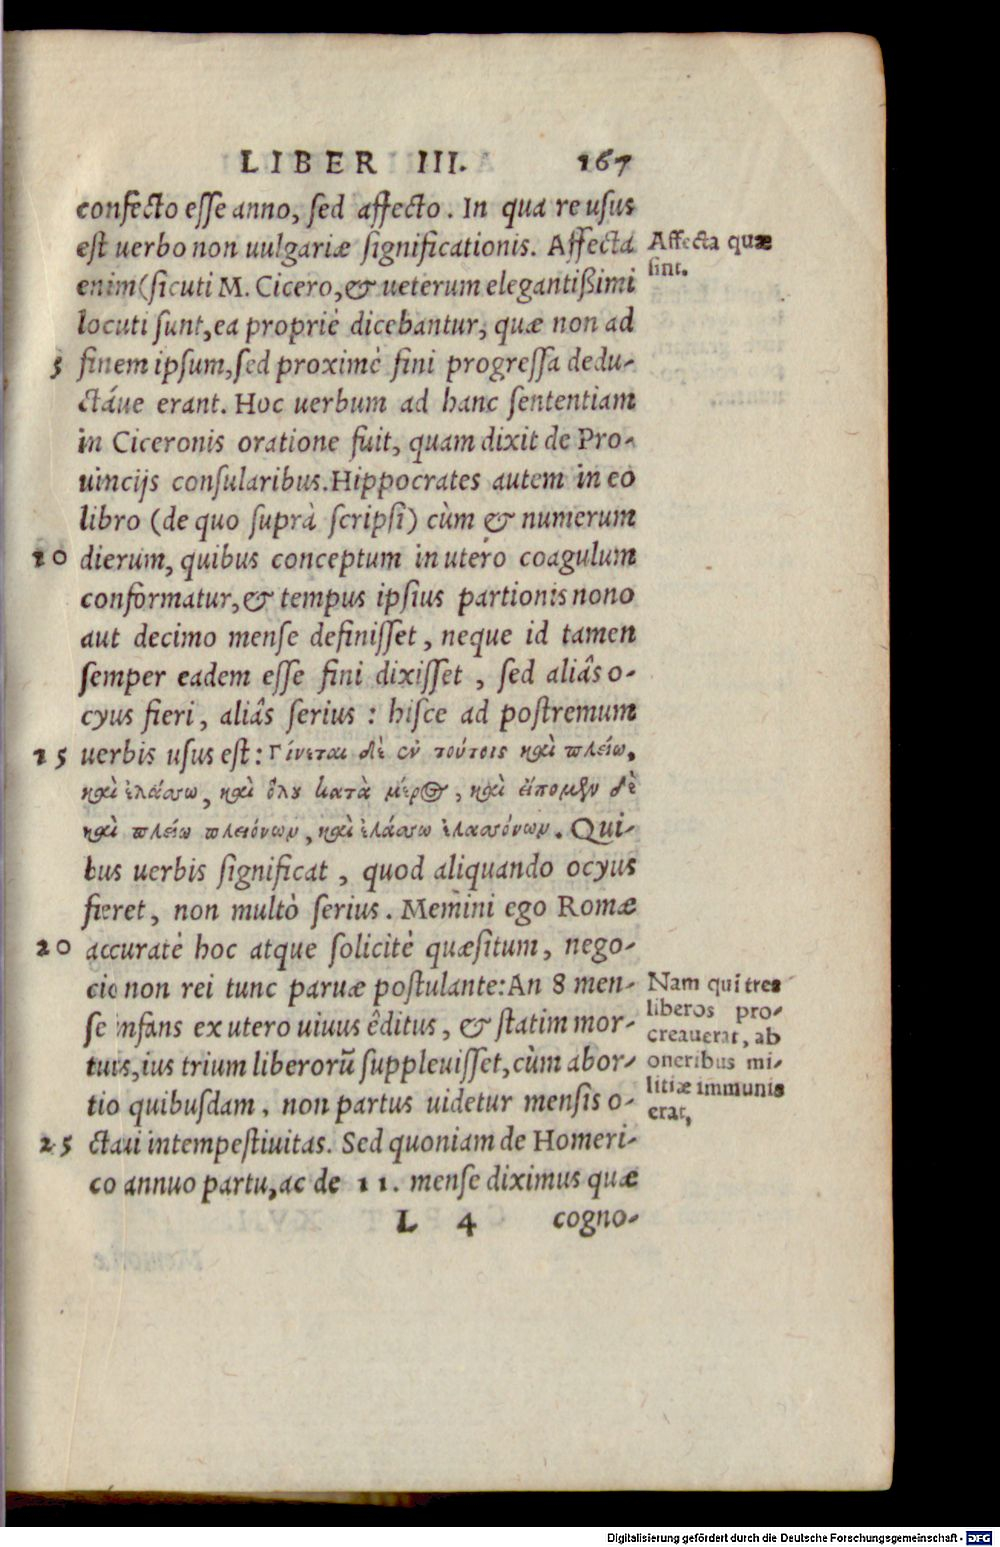 LIBER III. 167
confecto esse anno, sed affecto. In qua re usus
est uerbo non uulgariæ significationis. Affecta
Affecta quæ
sint.
enim (sicuti M. Cicero, & ueterum elegantißimi
locuti sunt, ea propriè dicebantur, quæ non ad
5 finem ipsum, sed proximè fini progressa dedu-
ctáue erant. Hoc uerbum ad hanc sententiam
in Ciceronis oratione fuit, quam dixit de Pro-
uincijs consularibus. Hippocrates autem in eo
libro (de quo suprà scripsi) cùm & numerum
10 dierum, quibus conceptum in utero coagulum
conformatur, & tempus ipsius partionis nono
aut decimo mense definisset, neque id tamen
semper eadem esse fini dixisset, sed aliâs o-
cyus fieri, aliâs serius: hisce ad postremum
15 uerbis usus est: Γίνεται δὲ ἐν τούτοις καὶ πλείω,
καὶ ἐλάσσω, καὶ ὅλου κατὰ μέρος, καὶ εἴπομεν δὲ
καὶ πλείω πλειόνων, καὶ ἐλάσσω ἐλασσόνων. Qui-
bus uerbis significat, quod aliquando ocyus
fieret, non multò serius. Memini ego Romæ
20 accuratè hoc atque solicitè quæsitum, nego-
cio non rei tunc paruæ postulante: An 8 men-
se infans ex utero uiuus êditus, & statim mor-
tuus, ius trium liberorũ suppleuisset, cùm abor-
tio quibusdam, non partus uidetur mensis o-
25 ctaui intempestiuitas. Sed quoniam de Homeri-
co annuo partu, ac de 11. mense diximus quæ
Nam qui tres
liberos pro-
creauerat, ab
oneribus mi-
litiæ immunis
erat,
L 4 cogno-
Digitalisierung gefördert durch die Deutsche Forschungsgemeinschaft - DFG